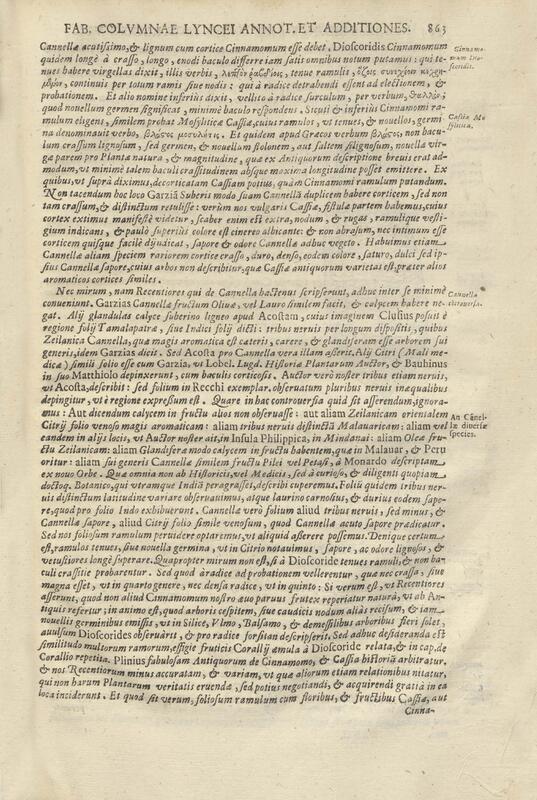 FAB. COLVMNAE LYNCEI ANNOT. ET ADDITIONES. 863
Cannellæ acutissimo, & lignum cum cortice Cinnamomum esse debet. Dioscoridis Cinnamomum
Cinnamo-
mum Dio-
scoridis.
quidem longè à crasso, longo, enodi baculo differre iam satis omnibus notum putamus: qui te-
nues habere virgellas dixit, illis verbis, tenue ramulis,
continuis per totum ramis siue nodis: qui à radice detrahendi essent ad electionem, &
probationem. Et alio nomine inferius dixit, vellito à radice surculum, per verbum,
quod nouellum germen significat, minimè baculo respondens. Sicuti & inferiùs Cinnamomi ra-
mulum eligens, similem probat Mosyliticæ Cassiæ, cuius ramulos, vt tenues, & nouellos, germi
Cassia Mo
sylitica.
na denominauit verbo, Et quidem apud Græcos verbum non bacu-
lum crassum lignosum, sed germen, & nouellum stolonem, aut saltem subligneum, nouella vir-
gæ parem pro Plantæ natura, & magnitudine, quæ ex Antiquorum descriptione breuis erat ad-
modum, vt minimè talem baculi crassitudinem absque maxima longitudine posset emittere. Ex
quibus, vt suprà diximus, decorticatam Cassiam potius, quàm Cinnamomi ramulum putandum.
Non tacendum hoc loco Garziã Suberis modo suam Cannellã duplicem habere corticem, sed non
tam crassum, & distinctum retulisse: verùm nos vulgaris Cassiæ, fistulæ partem habemus, cuius
cortex extimus manifestè videtur, scaber enim est extra, nodum, & rugas, ramulique vesti-
gium indicans, & paulò superiùs colore est cinereo albicante: & non abrasum, nec intimum esse
corticem quisque facilè dijudicat, sapore & odore Cannellæ adhuc vegeto. Habuimus etiam
Cannellæ aliam speciem rariorem cortice crasso, duro, denso, eodem colore, saturo, dulci sed ip-
sius Cannellæ sapore, cuius arbos non describitur, quæ Cassiæ antiquorum varietas est, præter alios
aromaticos cortices similes.
Nec mirum, nam Recentiores qui de Cannella hactenus scripserunt, adhuc inter se minimè
Cannellæ
côtrouersa.
conueniunt. Garzias Cannellæ fructum Oliuæ, vel Lauro similem facit, & calycem habere ne-
gat. Alij glandulas calyce suberino ligneo apud Acostam, cuius imaginem Clusius posuit è
regione folij Tamalapatræ, siue Indici folij dicti: tribus neruis per longum dispositis, quibus
Zeilanica Cannella, quæ magis aromatica est cæteris, carere, & glandiferam esse arborem sui
generis, idem Garzias dicit. Sed Acosta pro Cannella vera illam asserit. Alij Citri (Mali me-
dica) simili folio esse cum Garzia, vt Lobel. Lugd. Historiæ Plantarum Auctor, & Bauhinus
in suo Matthiolo depinxerunt, cum baculis corticosis. Auctor verò noster tribus etiam neruis,
vt Acosta, describit: sed folium in Recchi exemplar. obseruatum pluribus neruis inæqualibus
depingitur, vt è regione expresum est. Quare in hac controuersia quid sit asserendum, ignora-
mus: Aut dicendum calycem in fructu alios non obseruasse: aut aliam Zeilanicam orientalem
Citrij folio venoso magis aromaticam: aliam tribus neruis distinctã Malauaricam: aliam vel
An Cãnel-
læ diuersæ
species.
eandem in alijs locis, vt Auctor noster ait, in Insula Philippica, in Mindanai: aliam Oleæ fru-
ctu Zeilanicam: aliam Glandiferæ modo calycem in fructu habentem, quæ in Malauar, & Peru
oritur: aliam sui generis Cannellæ similem fructu Pilei vel Petasi, à Monardo descriptam
ex nouo Orbe. Quæ omnia non ab Historicis, vel Medicis, sed à curioso, & diligenti quopiam
doctoq. Botanico, qui vtramque Indiã peragrasset, describi cuperemus. Foliũ quidem tribus ner-
uis distinctum latitudine variare obseruauimus, atque laurino carnosius, & durius eodem sapo-
re, quod pro folio Indo exhibuerunt. Cannellæ verò folium aliud tribus neruis, sed minus, &
Cannellæ sapore, aliud Citrij folio simile venosum, quod Cannellæ acuto sapore prædicatur.
Sed nos foliosum ramulum peruidere optaremus, vt aliquid asserere possemus. Denique certum
est, ramulos tenues, siue nouella germina, vt in Citrio notauimus, sapore, ac odore lignosos, &
vetustiores longè superare. Quapropter mirum non est, si à Dioscoride tenues ramuli, & non ba-
culi crassitie probarentur. Sed quod à radice ad probationem vellerentur, quæ nec crassa, siue
magna esset, vt in quarto genere, nec densa radice, vt in quinto: Si verum est, vt Recentiores
asserunt, quod non aliud Cinnamomum nostro æuo paruus frutex reperiatur naturâ, vt ab An-
tiquis refertur; in animo est, quod arboris cespitem, siue caudicis nodum aliàs recisum, & iam
nouellis germinibus emissis, vt in Silice, Vlmo, Balsamo, & demessilibus arboribus fieri solet,
auulsum Dioscorides obseruârit, & pro radice forsitan descripserit. Sed adhuc desideranda est
similitudo multorum ramorum, effigie fruticis Corallij æmula à Dioscoride relata, & in cap. de
Corallio repetita. Plinius fabulosam Antiquorum de Cinnamomo, & Cassia historiã arbitratur,
& nos Recentiorum minus accuratam, & variam, vt quæ aliorum etiam relationibus nitatur,
qui non harum Plantarum veritatis eruendæ, sed potius negotiandi, & acquirendi gratiâ in ea
loca inciderunt. Et quod sit verum, foliosum ramulum cum floribus, & fructibus Cassiæ, aut
Cinna-